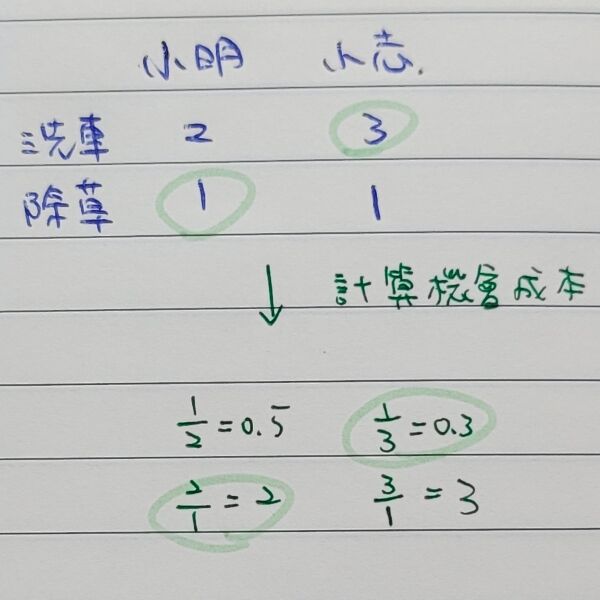 小明 小志.
洗車 2 3
除草 1 1
↓ 計算機會成本
1/2 = 0.5 1/3 = 0.3
2/1 = 2 3/1 = 3